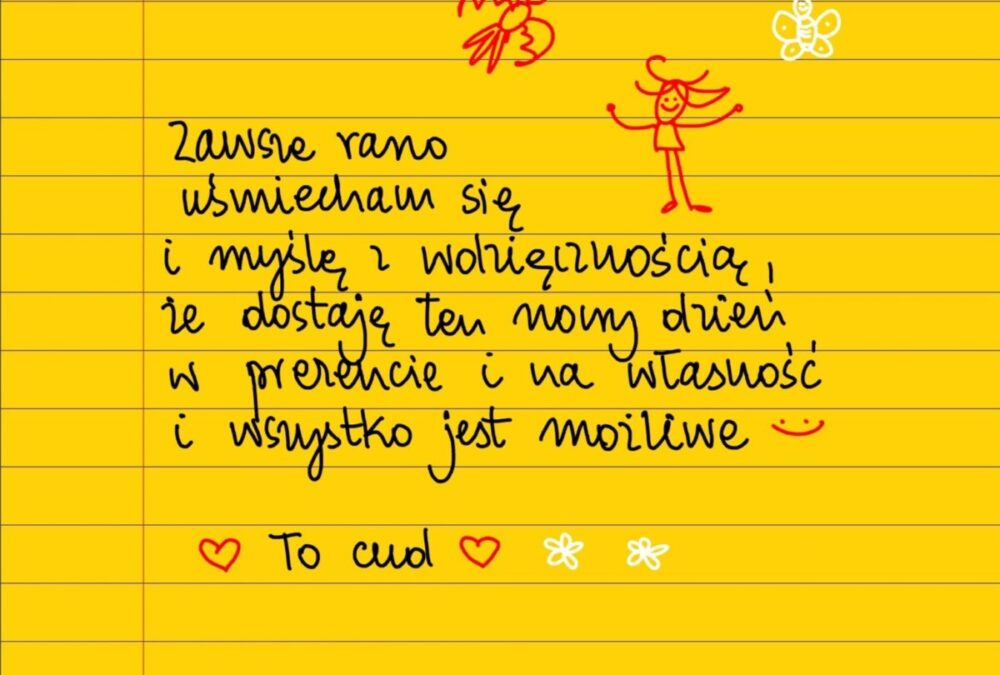 Zawsze rano
uśmiecham się
i myślę z wdzięcznością,
że dostaję ten nowy dzień
w prezencie i na własność
i wszystko jest możliwe
To cud